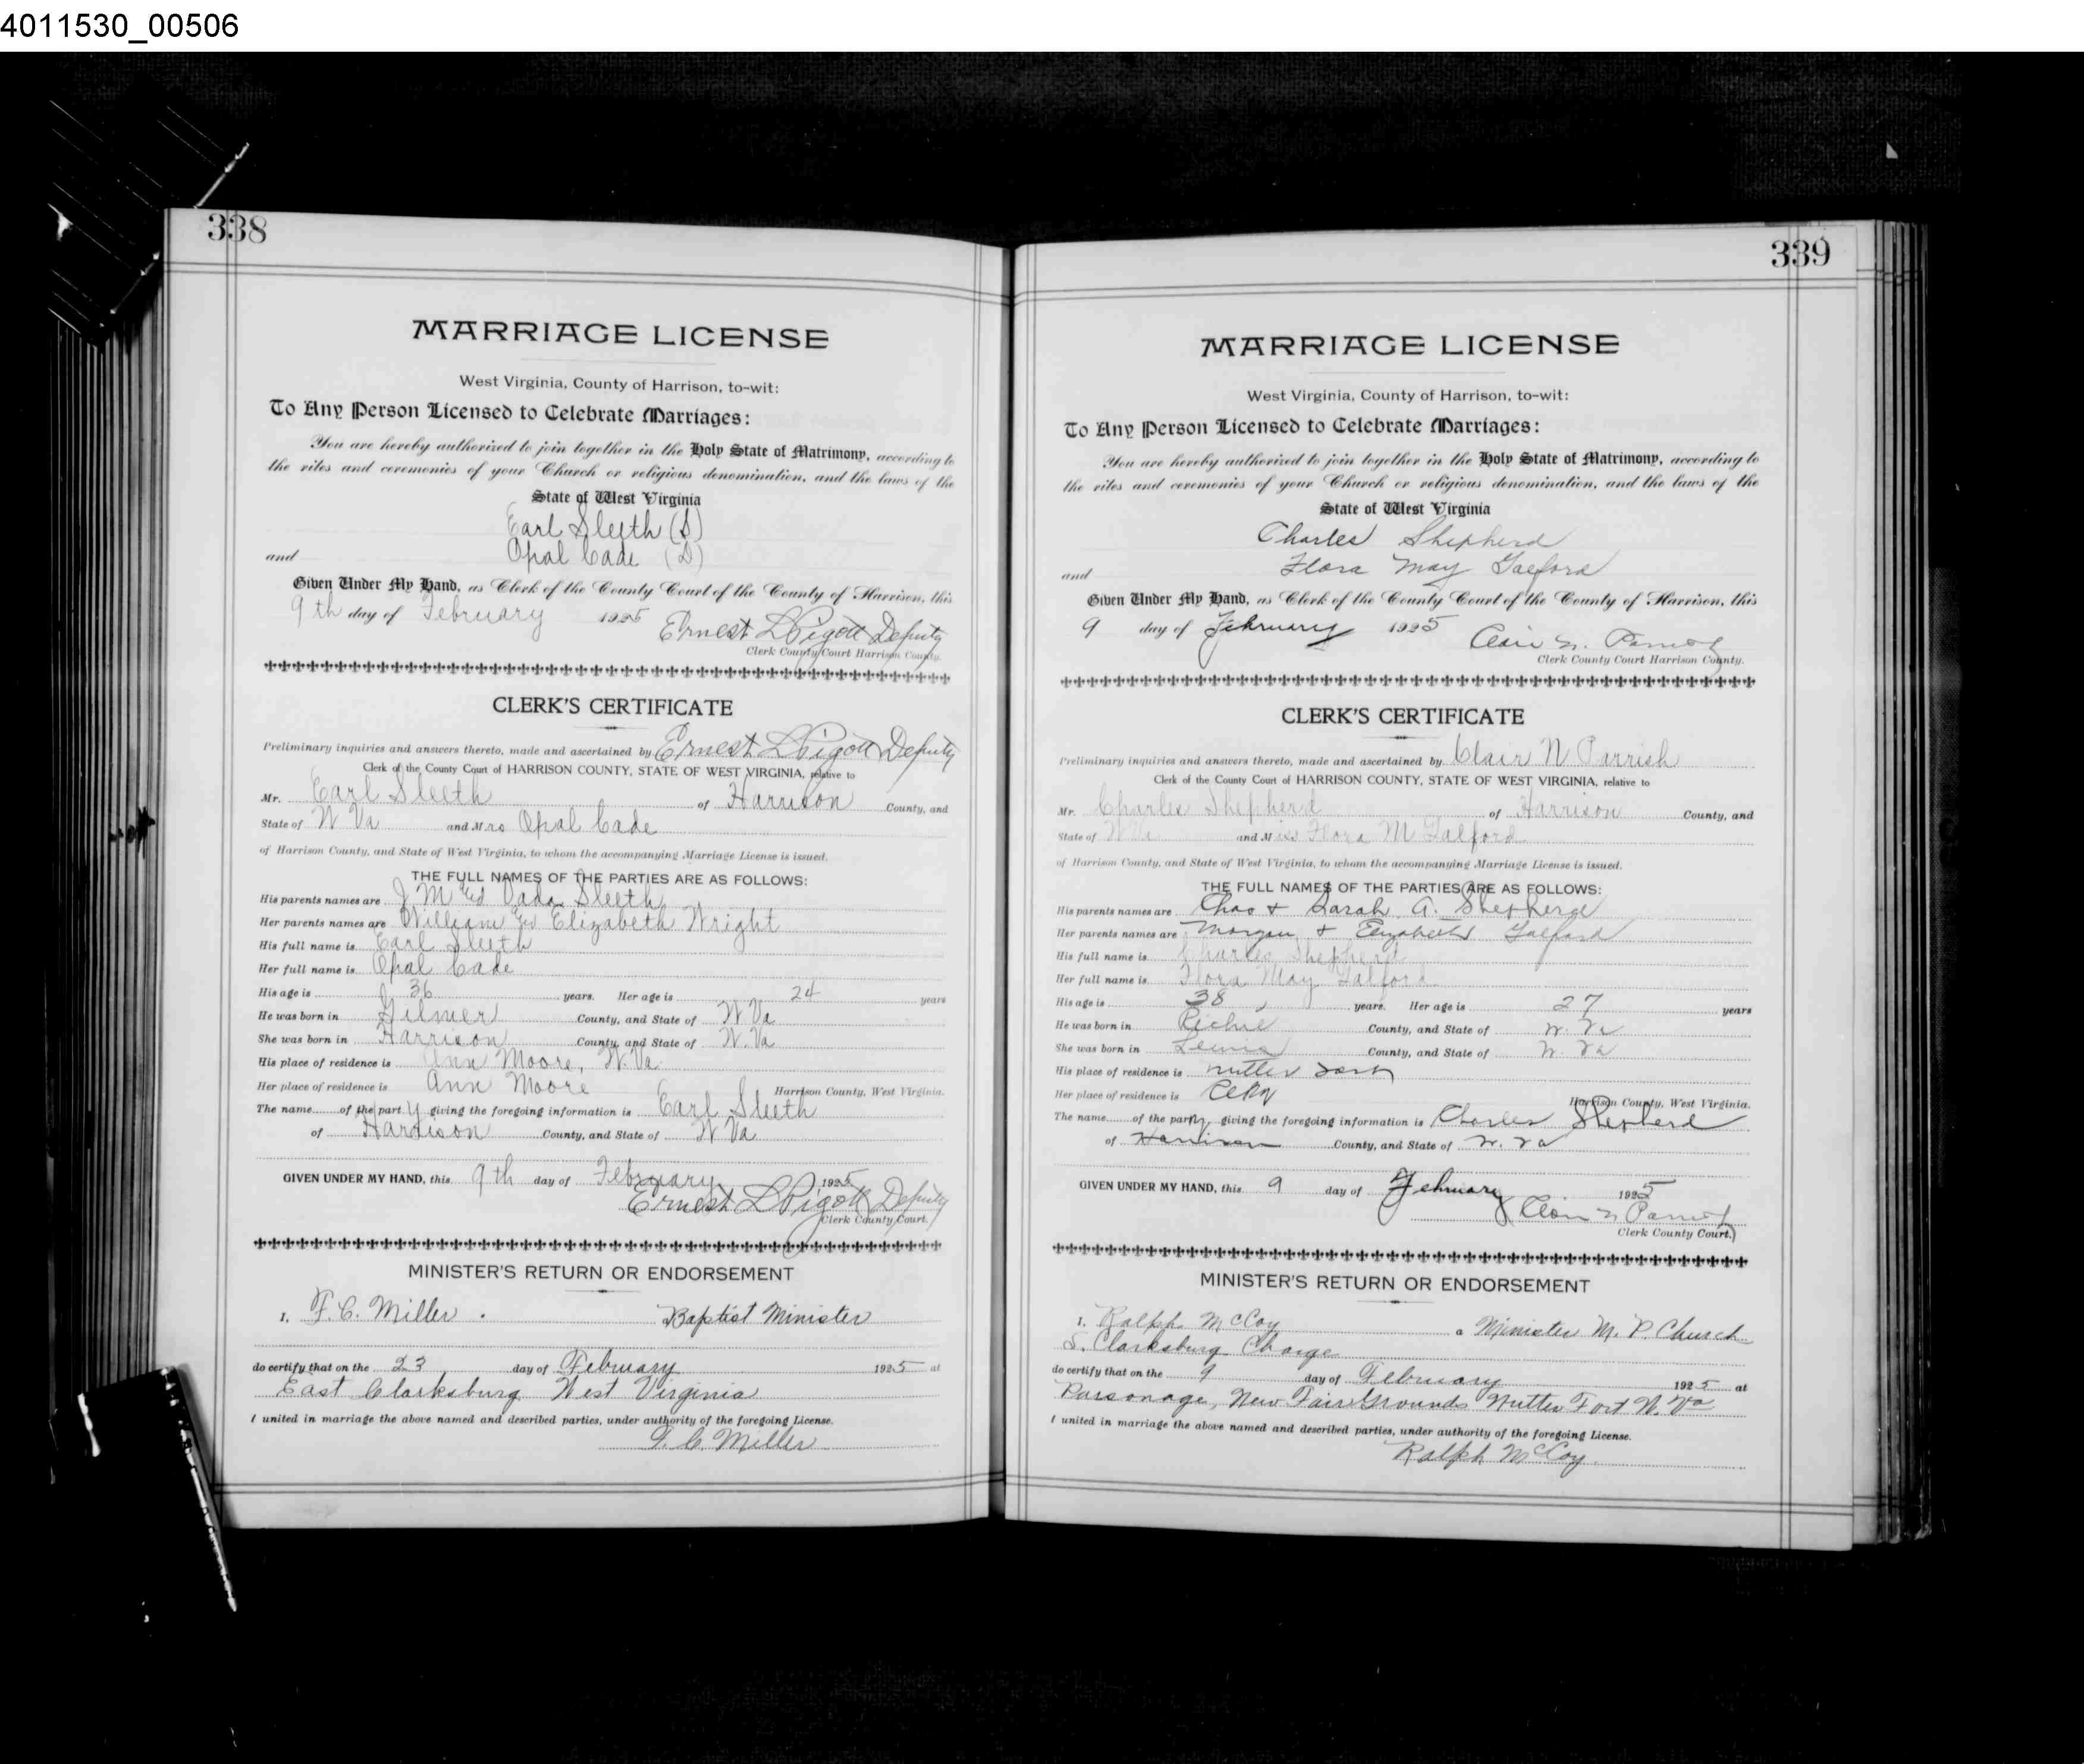 4011530_00506
338
MARRIAGE LICENSE
West Virginia, County of Harrison, to-wit:
To Any Person Licensed to Celebrate Marriages:
You are hereby authorized to join together in the Holy State of Matrimony, according to
the rites and ceremonies of your Church or religious denomination, and the laws of the
State of West Virginia
Earl Sleeth (S)
and Opal Cade (D)
Given Under My Hand, as Clerk of the County Court of the County of Harrison, this
9th day of February 1925 Ernest L Pigott Deputy
Clerk County Court Harrison County.
CLERK'S CERTIFICATE
Preliminary inquiries and answers thereto, made and ascertained by Ernest L Pigott Deputy
Clerk of the County Court of HARRISON COUNTY, STATE OF WEST VIRGINIA, relative to
Mr. Earl Sleeth of Harrison County, and
State of W Va and Mrs Opal Cade
of Harrison County, and State of West Virginia, to whom the accompanying Marriage License is issued.
THE FULL NAMES OF THE PARTIES ARE AS FOLLOWS:
His parents names are J M and Vada Sleeth
Her parents names are William and Elizabeth Wright
His full name is Earl Sleeth
Her full name is Opal Cade
His age is 36 years. Her age is 24 years
He was born in Gilmer County, and State of W Va
She was born in Harrison County, and State of W. Va
His place of residence is Ann Moore, W. Va
Her place of residence is Ann Moore Harrison County, West Virginia.
The name of the party giving the foregoing information is Earl Sleeth
of Harrison County, and State of W Va
GIVEN UNDER MY HAND, this 9th day of February 1925
Ernest L Pigott Deputy
Clerk County Court.
MINISTER'S RETURN OR ENDORSEMENT
I, F. C. Miller. Baptist Minister
do certify that on the 23 day of February 1925 at
East Clarksburg West Virginia
I united in marriage the above named and described parties, under authority of the foregoing License.
F. C. Miller
339
MARRIAGE LICENSE
West Virginia, County of Harrison, to-wit:
To Any Person Licensed to Celebrate Marriages:
You are hereby authorized to join together in the Holy State of Matrimony, according to
the rites and ceremonies of your Church or religious denomination, and the laws of the
State of West Virginia
Charles Shepherd
and Flora May Galford
Given Under My Hand, as Clerk of the County Court of the County of Harrison, this
9 day of February 1925 Clair N. Parrish
Clerk County Court Harrison County.
CLERK'S CERTIFICATE
Preliminary inquiries and answers thereto, made and ascertained by Clair N Parrish
Clerk of the County Court of HARRISON COUNTY, STATE OF WEST VIRGINIA, relative to
Mr. Charles Shepherd of Harrison County, and
State of W Va and Miss Flora M Galford
of Harrison County, and State of West Virginia, to whom the accompanying Marriage License is issued.
THE FULL NAMES OF THE PARTIES ARE AS FOLLOWS:
His parents names are Chas + Sarah A. Shepherd
Her parents names are Morgan + Elizabeth Galford
His full name is Charles Shepherd
Her full name is Flora May Galford
His age is 38 years. Her age is 27 years
He was born in Richie County, and State of W. Va
She was born in Lewis County, and State of W. Va
His place of residence is Nutter Fort
Her place of residence is Harrison County, West Virginia.
The name of the party giving the foregoing information is Charles Shepherd
of Harrison County, and State of W. Va
GIVEN UNDER MY HAND, this 9 day of February 1925
Clair N Parrish
Clerk County Court.
MINISTER'S RETURN OR ENDORSEMENT
I, Ralph McCoy a Minister M. P. Church
S. Clarksburg Charge
do certify that on the 9 day of February 1925 at
Parsonage, New Fair Grounds Nutter Fort W. Va
I united in marriage the above named and described parties, under authority of the foregoing License.
Ralph McCoy.